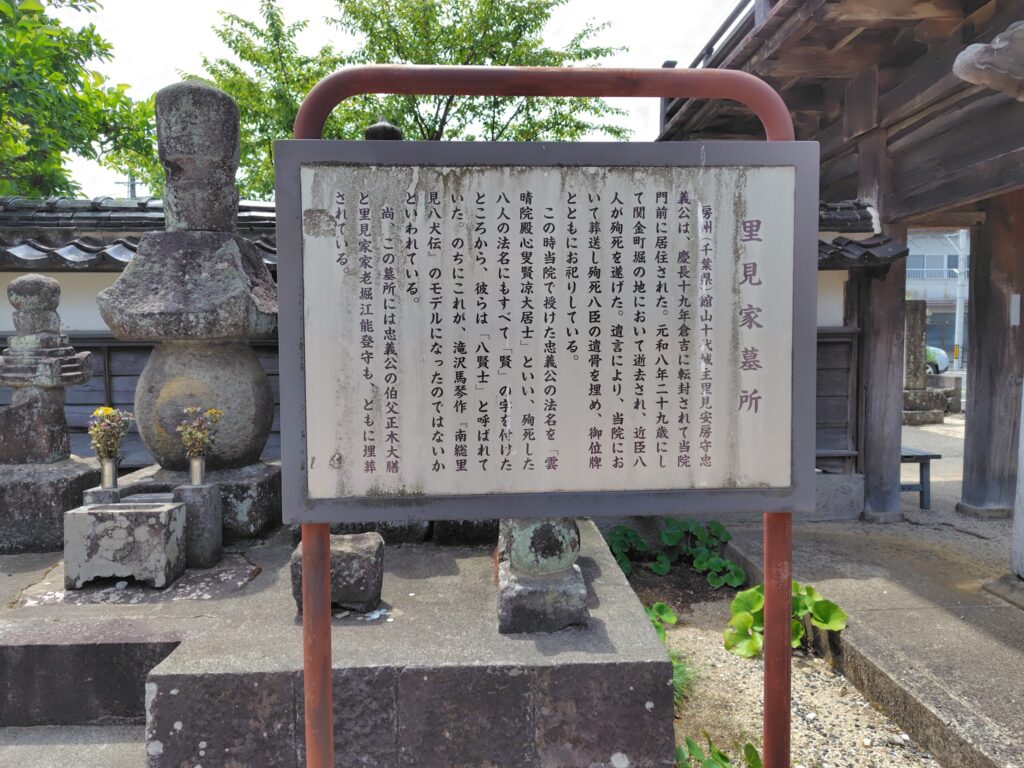 里見家墓所
房州(千葉県)館山十代城主里見安房守忠
義公は、慶長十九年倉吉に転封されて当院
門前に居住された。元和八年二十九歳にし
て関金町堀の地において逝去され、近臣八
人が殉死を遂げた。遺言により、当院にお
いて葬送し殉死八臣の遺骨を埋め、御位牌
とともにお祀りしている。
この時当院で授けた忠義公の法名を「雲
晴院殿心叟賢凉大居士」といい、殉死した
八人の法名にもすべて「賢」の字を付けた
ところから、彼らは「八賢士」と呼ばれて
いた。のちにこれが、滝沢馬琴作『南総里
見八犬伝』のモデルになったのではないか
といわれている。
尚、この墓所には忠義公の伯父正木大膳
と里見家家老堀江能登守も、ともに埋葬
されている。